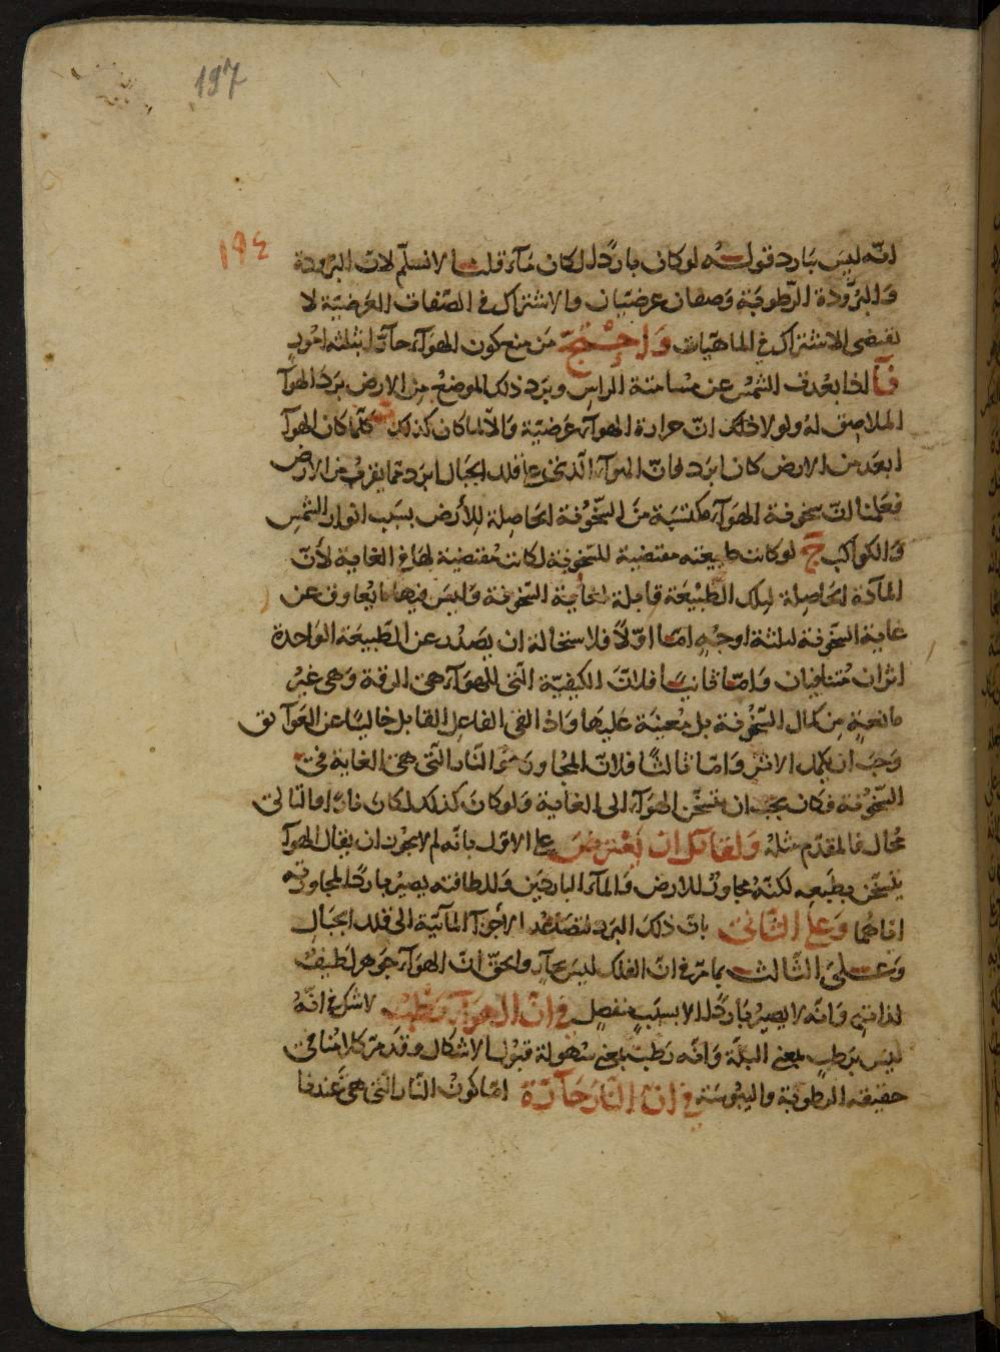 197
١٩٤
انه ليس ببارد قولته لو كان باردا لكان ماء قلنا لا نسلم لان البرودة
والبرودة الرطوبة وصفان عرضيان والاشتراك في الصفات العرضية لا
يقتضي الاشتراك في الماهيات واحتج من منع كون الهوآء حارا بثلثة امور
آ اذا بعدت الشمس عن مسامتة الراس وبرد ذلك الموضع من الارض برد الهوآ
الملاصق له ولولا ذلك ان حرارة الهوآء عرضية والا لما كان كذلك ب كلما كان الهوآ
ابعد من الارض كان ابرد فان الهوآء الذي على قلل الجبال ابرد مما يقرب من الارض
فعلمنا ان سخونة الهوآء مكتسبة من السخونة الحاصلة للأرض بسبب انوار الشمس
والكواكب ج لو كانت طبيعته مقتضية للسخونة لكانت مقتضية لها في الغاية لأن
المآدة الحاصلة لتلك الطبيعة قابلة لغاية السخونة وليس فيها ما يعاوق عن
غاية السخونة لثلثة اوجه اما اولا فلاستحالة ان يصدر عن الطبيعة الواحدة
اثران متنافيان واما ثانيا فلان الكيفية التي للهوآء هي الرقة وهي غير
مانعة من كمال السخونة بل معينة عليها واذا لقي الفاعل القابل خاليا عن العوآئق
وجب ان يكمل الاثر واما ثالثا فلان المجاور منه النار التي هي الغاية في
السخونة فكان يجب ان يتسخن الهوآء الى الغاية ولو كان كذلك لكان نارا والتالي
محال فالمقدم مثله ولقائل ان يعترض على الاول بانه لم لا يجوز ان يقال الهوآ
يتسخن بطبعه لكنه مجاور للارض والمآء الباردين وللطافته يصير باردا لمجاورته
اياهما وعلى الثاني بان ذلك البرد لتصاعد الأجزآ المآئية الى قلل الجبال
وعلى الثالث بما مر في ان الفلك ليس بحار والحق ان الهوآء جوهر لطيف
لذاته وانه لا يصير باردا الا بسبب منفصل في ان الهوآء رطب لا شك في انه
ليس برطب بمعنى البلة وانه رطب بمعنى سهولة قبول الاشكال وقد مر كلامنا في
حقيقة الرطوبة واليبوسة في ان النار حآرة اما كون النار التي هي عندنا